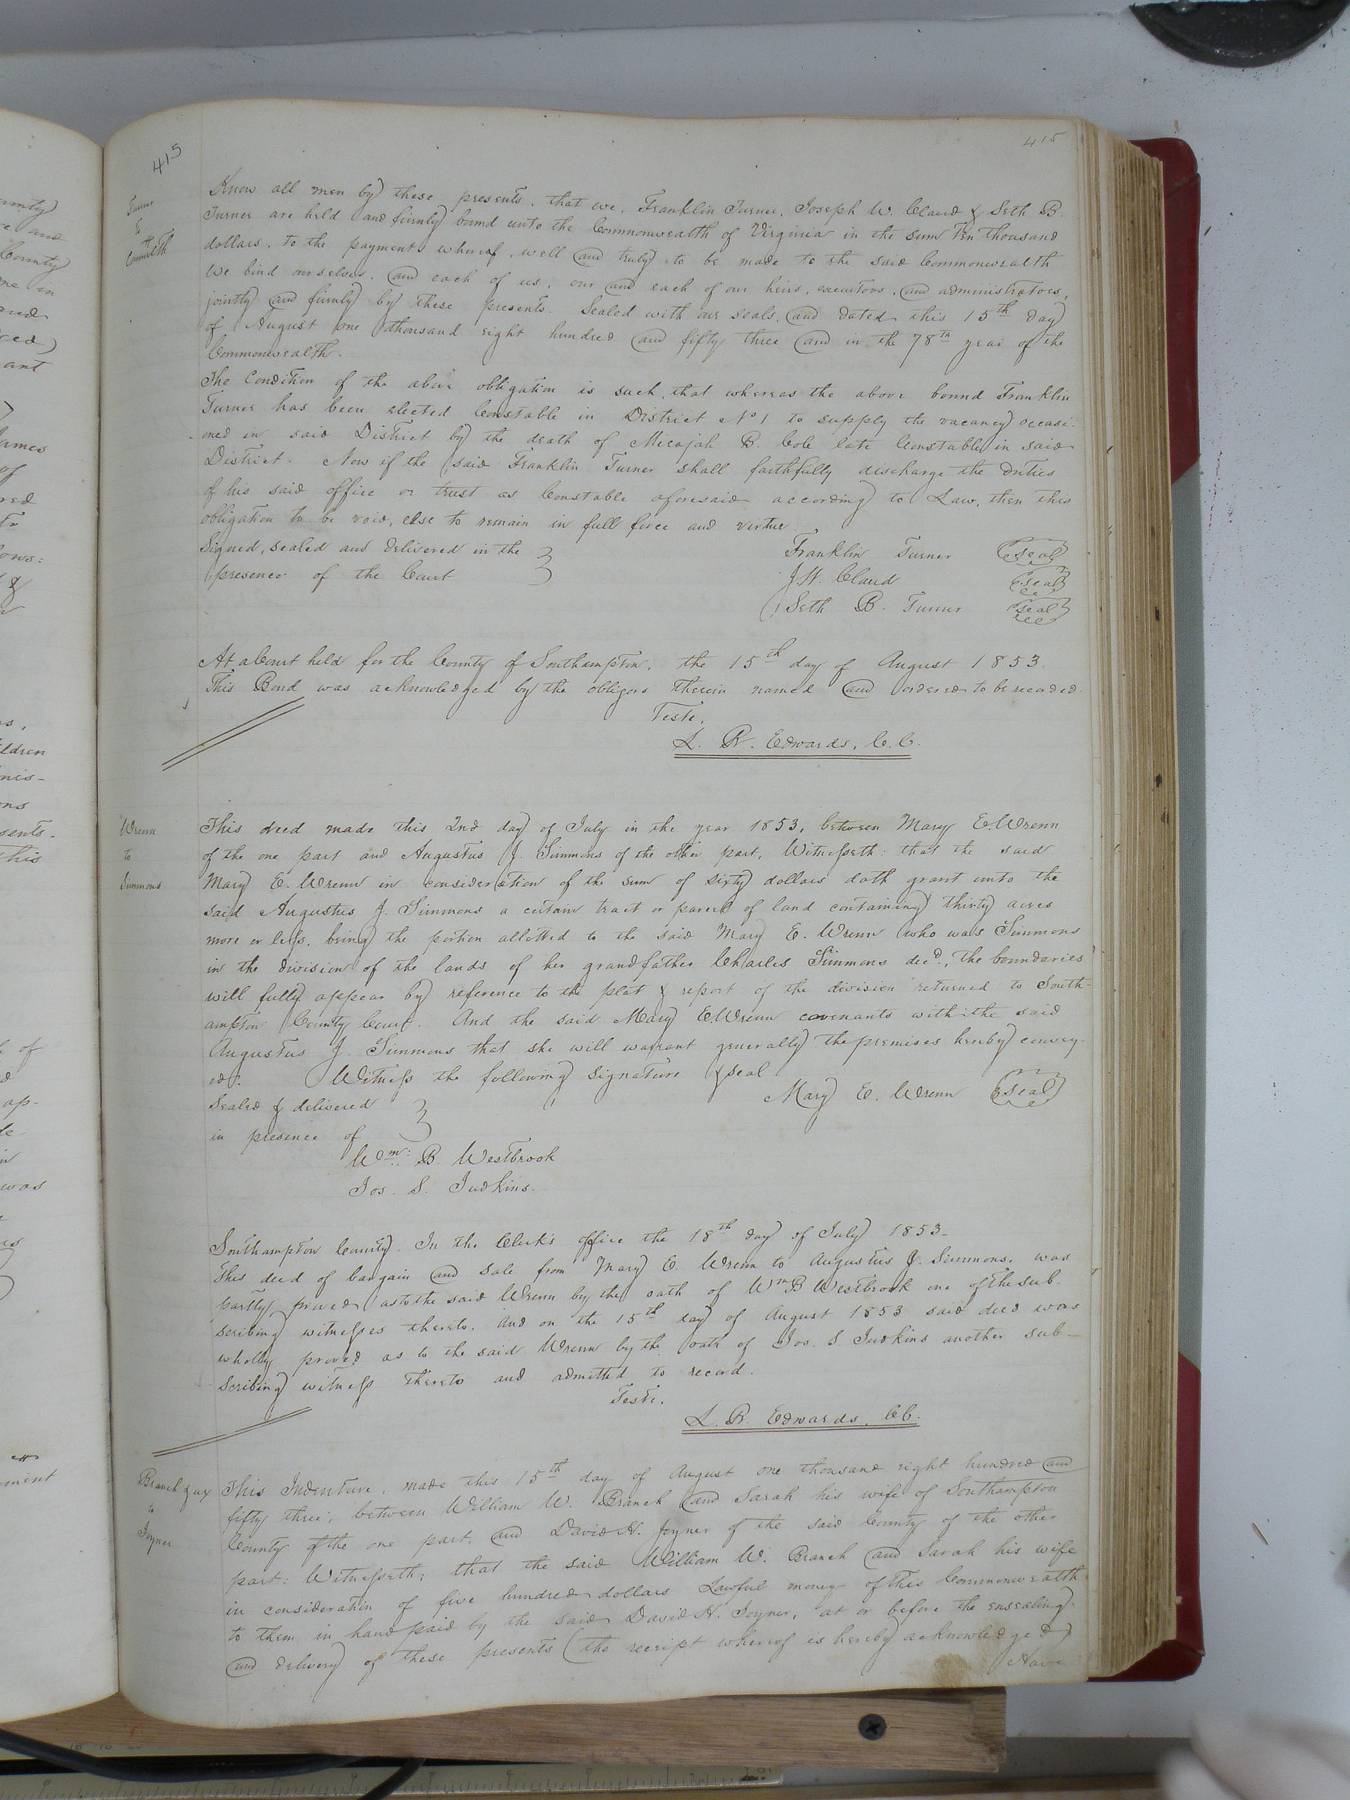 415
415
Turner
to
Commlth
Know all men by these presents, that we, Franklin Turner, Joseph W. Claud & Seth B.
Turner are held and firmly bound unto the Commonwealth of Virginia in the sum Ten thousand
dollars, to the payment whereof, well and truly to be made to the said Commonwealth
we bind ourselves, and each of us, our and each of our heirs, executors, and administrators,
jointly and firmly by these presents. Sealed with our seals, and dated this 15th day
of August one thousand eight hundred and fifty three and in the 78th year of the
Commonwealth.
The Condition of the above obligation is such, that whereas the above bound Franklin
Turner has been elected Constable in District No 1 to supply the vacancy occasi-
-oned in said District by the death of Micajah B. Cole late Constable in said
District. Now if the said Franklin Turner shall faithfully discharge the duties
of his said office or trust as Constable aforesaid according to Law, then this
obligation to be void, else to remain in full force and virtue.
Signed, sealed and delivered in the } Franklin Turner (seal)
presence of the Court J.W. Claud (seal)
Seth B. Turner (seal)
At a Court held for the County of Southampton, the 15th day of August 1853.
This Bond was acknowledged by the obligors therein named and ordered to be recorded.
Teste,
L. R. Edwards, C.C.
Wrenn
to
Simmons
This deed made this 2nd day of July in the year 1853, between Mary E. Wrenn
of the one part and Augustus J. Simmons of the other part, Witnesseth: that the said
Mary E. Wrenn in consideration of the sum of sixty dollars doth grant unto the
said Augustus J. Simmons a certain tract or parcel of land containing thirty acres
more or less, being the portion allotted to the said Mary E. Wrenn who was Simmons
in the division of the lands of her grandfather Charles Simmons decd, the boundaries
will fully appear by reference to the plat & report of the division returned to South-
ampton County Court. And the said Mary E. Wrenn covenants with the said
Augustus J. Simmons that she will warrant generally the premises hereby convey-
ed. Witness the following signature & seal
Sealed & delivered } Mary E. Wrenn (seal)
in presence of
Wm. B. Westbrook
Jos. S. Judkins.
Southampton County. In the Clerk's office the 18th day of July 1853.
This deed of bargain and sale from Mary E. Wrenn to Augustus J. Simmons, was
partly proved as to the said Wrenn by the oath of Wm B Westbrook one of the sub-
scribing witnesses thereto. And on the 15th day of August 1853 said deed was
wholly proved as to the said Wrenn by the oath of Jos. S. Judkins another sub-
scribing witness thereto and admitted to record.
Teste,
L. R. Edwards, CC.
Branch & ux
to
Joyner
This Indenture, made this 15th day of August one thousand eight hundred and
fifty three, between William W. Branch and Sarah his wife of Southampton
County of the one part, and David H. Joyner of the said County of the other
part: Witnesseth, that the said William W. Branch and Sarah his wife
in consideration of five hundred dollars Lawful money of this Commonwealth
to them in hand paid by the said David H. Joyner, at or before the ensealing
and delivery of these presents (the receipt whereof is hereby acknowledged)
Have